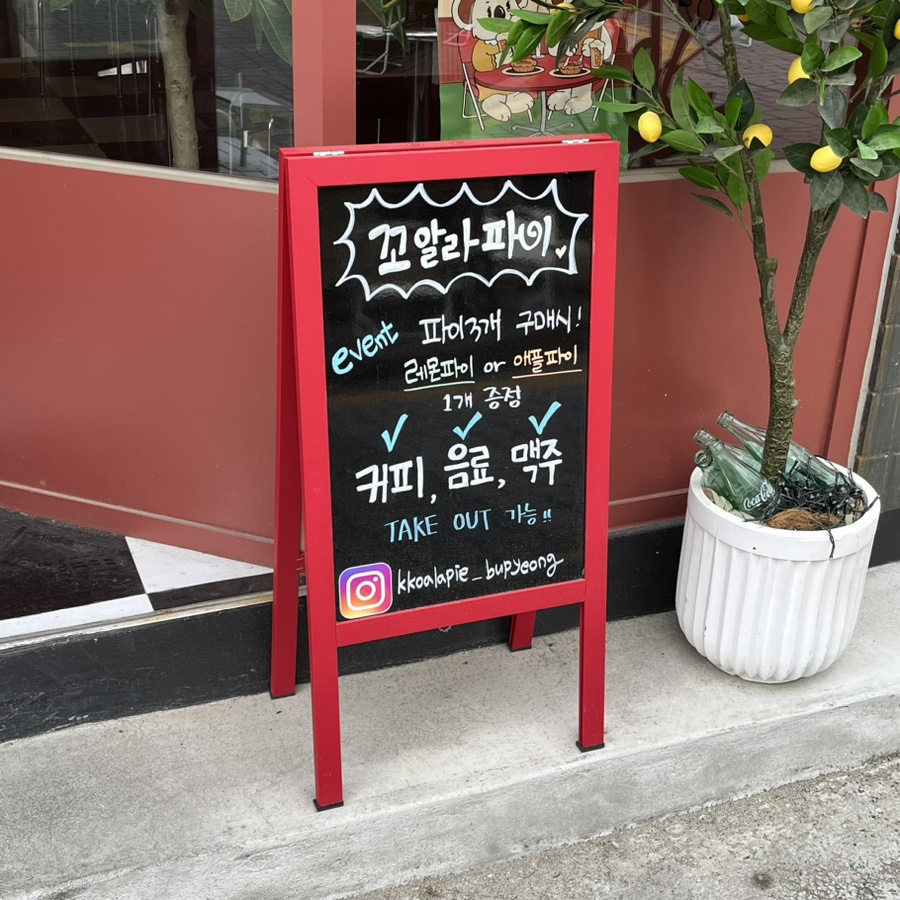 꼬알라파이
event 파이3개 구매시!
레몬파이 or 애플파이
1개 증정
커피, 음료, 맥주
TAKE OUT 가능!!
kkoalapie_bupyeong
Coca-Cola